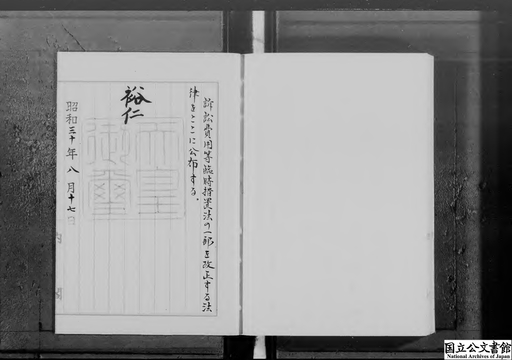 訴訟費用等臨時措置法の一部を改正する法
律をここに公布する。
裕仁
天皇
御璽
昭和三十年八月十七日
国立公文書館
National Archives of Japan